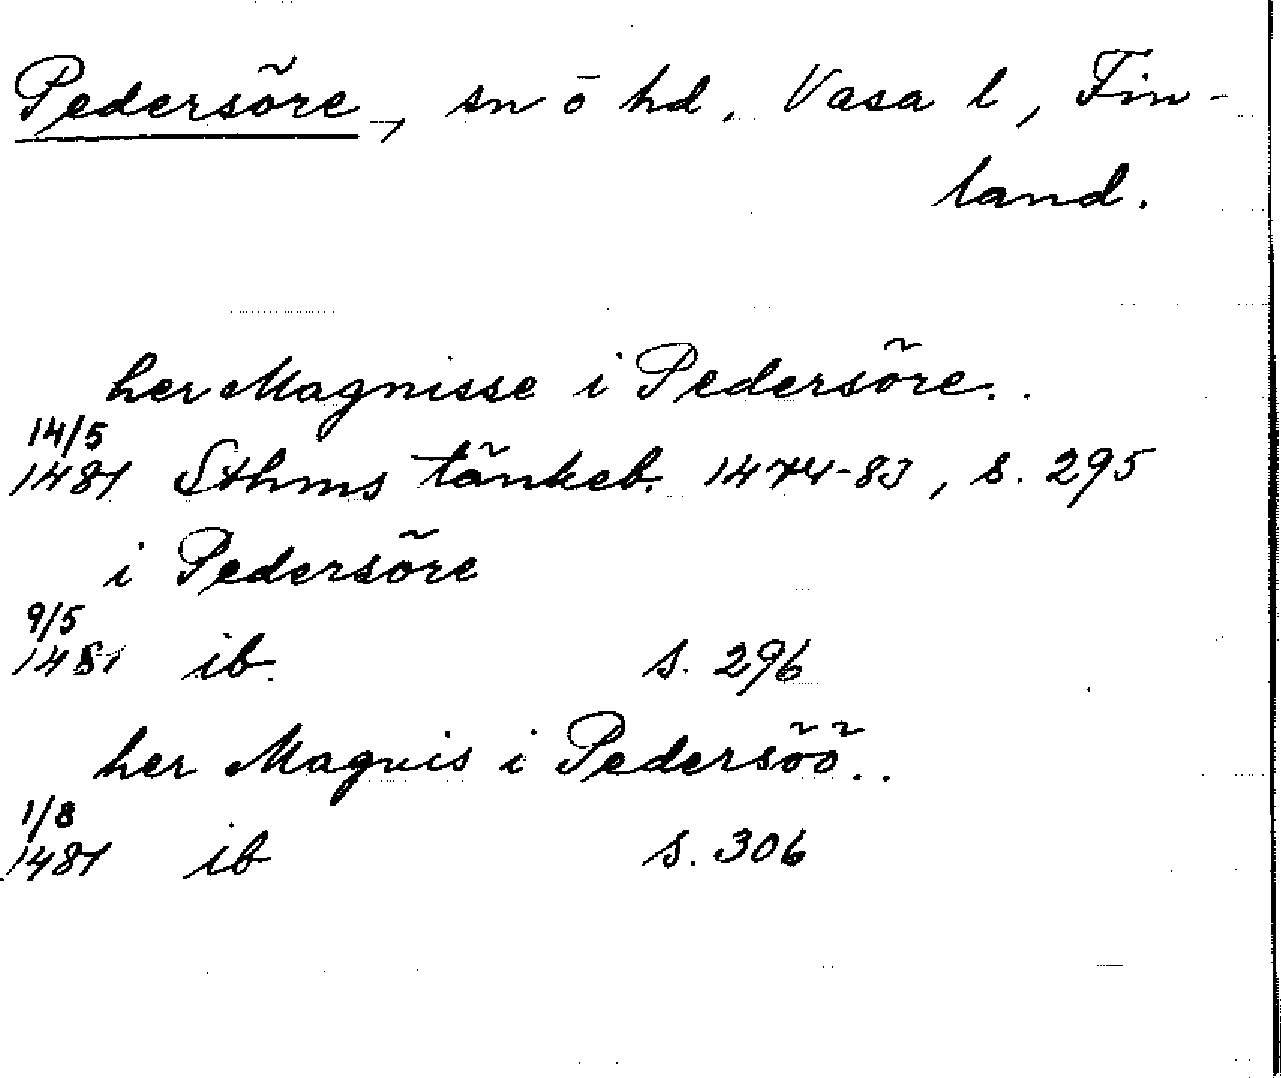 Pedersöre, sn o hd, Vasa l, Fin-
land.
her Magnisse i Pedersöre..
14/5
1481 Sthms tänkeb. 1474-83, s. 295
i Pedersöre
9/5
1481 ib. s. 296
her Magnis i Pedersöö..
1/8
1481 ib s. 306